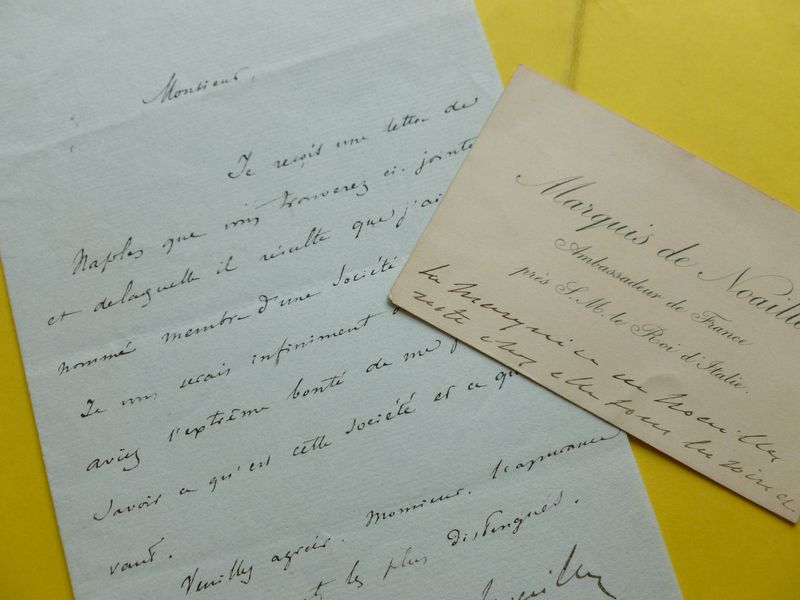 Monsieur,
Je reçois une lettre de
Naples que vous trouverez ci-jointe
et delaquelle il résulte que j'ai
nommé membre d'une Société
Je vous serais infiniment
aviez l'extrême bonté de me
Savoir ce qu'est cette Société et ce qu
vaut.
Veuillez agréer, Monsieur, l'assurance
les plus distingués.
Marquis de Noaill
Ambassadeur de France
près S. M. le Roi d'Italie.
La Marquise de Noailles
reste chez elle tous les